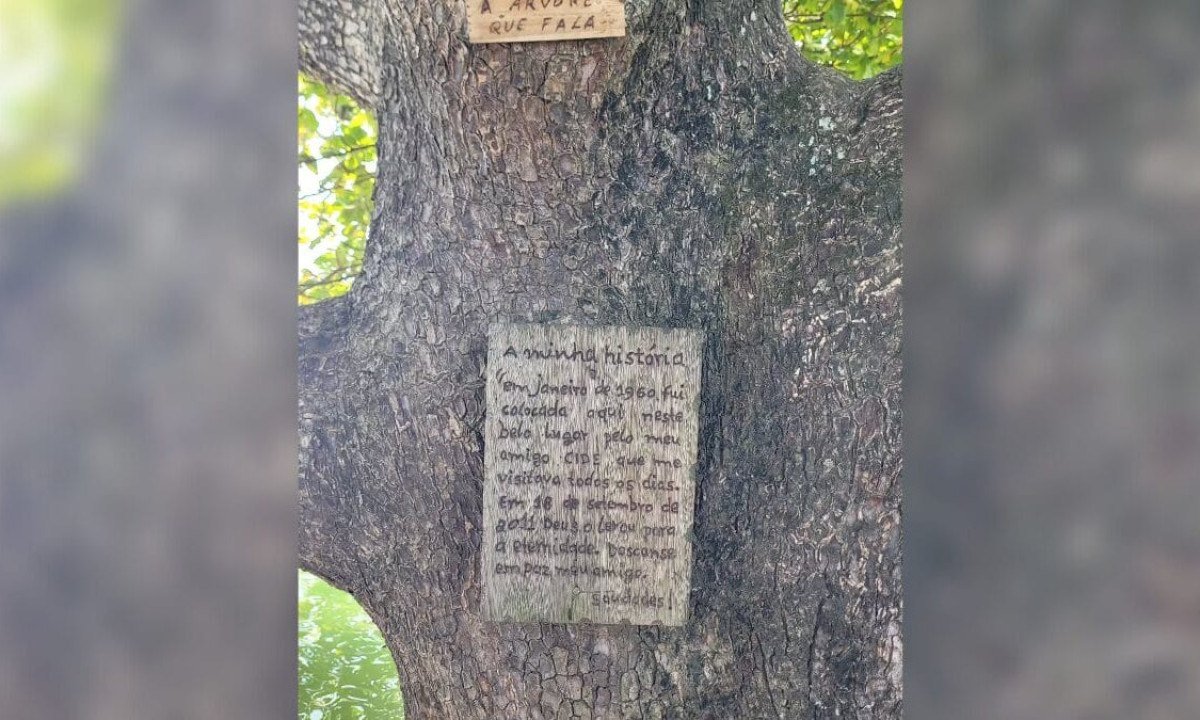 A ÁRVORE
QUE FALA
A minha história
"em janeiro de 1960, fui
colocada aqui neste
belo lugar pelo meu
amigo CIDE que me
visitava todos os dias.
Em 18 de setembro de
2011 Deus o levou para
a eternidade. Descanse
em paz, meu amigo.
Saudades!